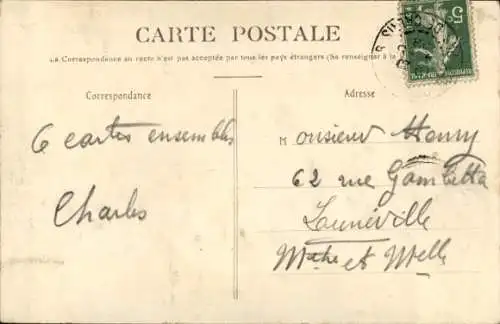 CARTE POSTALE
La Correspondance au recto n'est pas acceptée par tous les pays étrangers (Se renseigner à la
Correspondance
Adresse
6 cartes ensembles
Charles
Monsieur Henry
62 rue Gambetta
Lunéville
Mthe et Mlle
5c